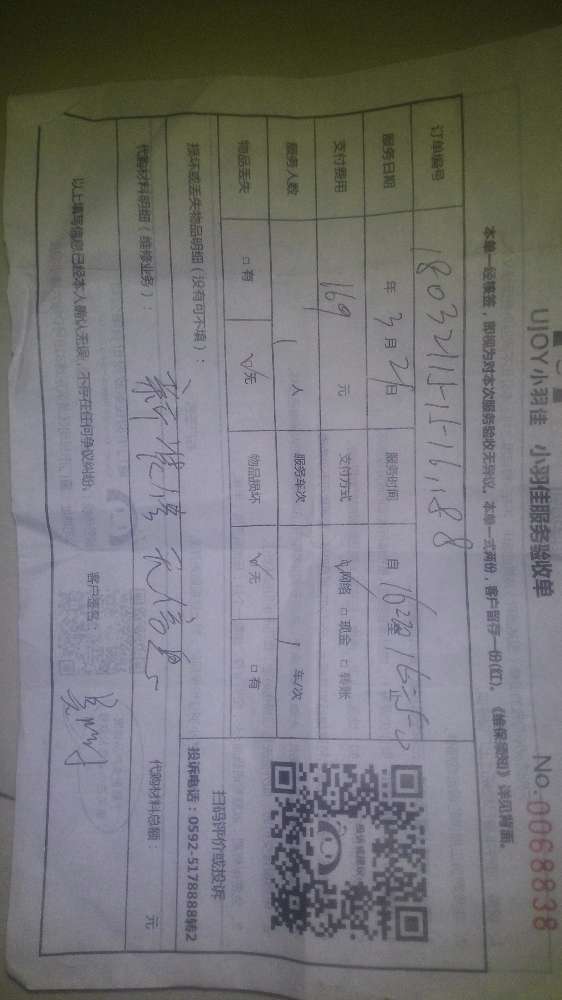 UJOY小羽佳 小羽佳服务验收单
No.0068838
本单一经像签,即视为对本次服务验收无异议。本单一式两份,客户留存一份(红)。《维保须知》详见背面。
订单编号
服务日期 年 3 月 21 日 服务时间 自
支付费用 169 元 支付方式 √网络 □现金 □转账
服务人数 1 人 服务车次 1 车/次
物品丢失 □有 √无 物品损坏 √无 □有
损坏或丢失物品明细(没有可不填):
扫码评价或投诉
投诉电话:0592-5178888转2
代购材料明细(维修业务): 代购材料总额: 元
以上填写信息已经本人确认无误,不存在任何争议纠纷。 客户签名: